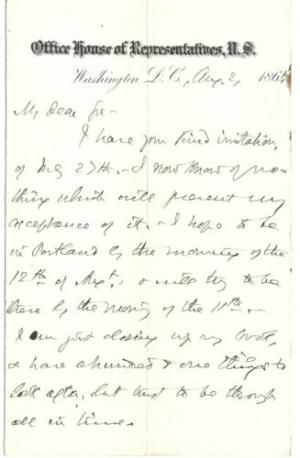 Office House of Representatives, U.S.
Washington D.C., Aug. 2, 186
My Dear Sir -
I have your kind invitation
of July 27th. - I now know of no-
thing which will prevent my
acceptance of it. - I hope to be
in Portland by the morning of the
12th of Augt. & will try to be
there by the morning of the 11th. -
I am just closing up my work,
& have a hundred & one things to
look after, but trust to be through
all in time.